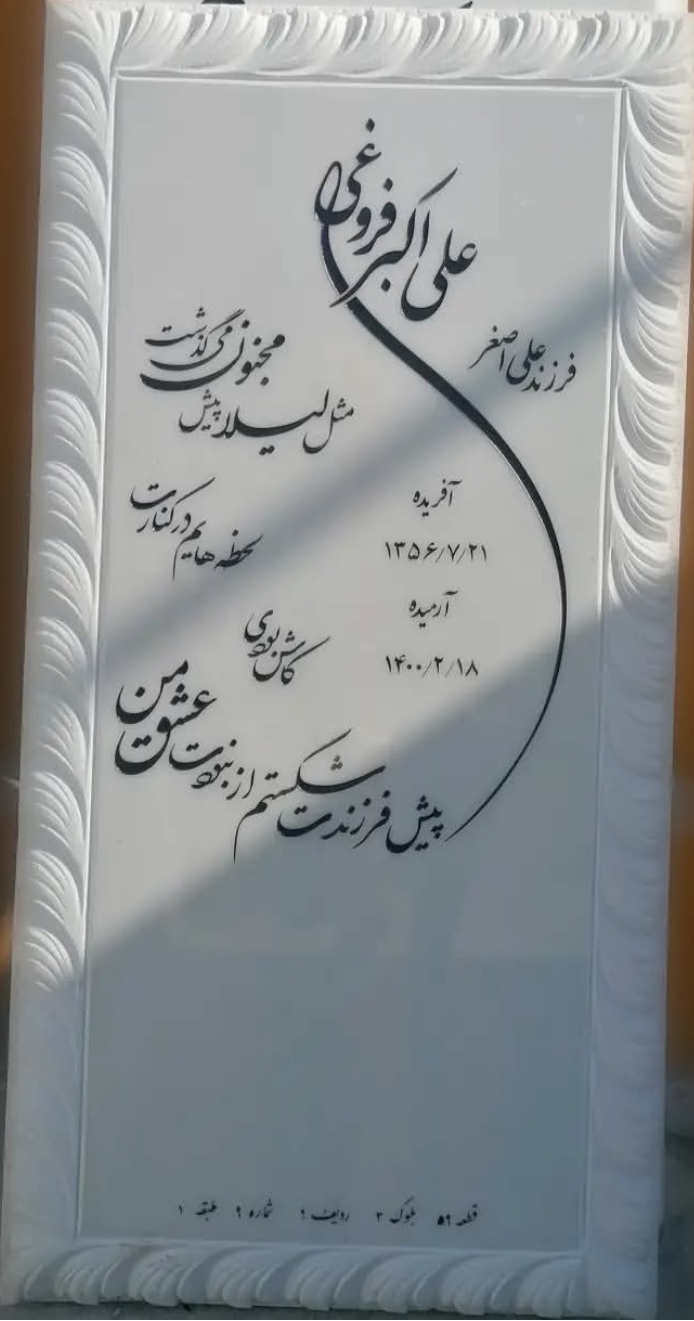 علی اکبر فروغی
فرزند علی اصغر
لحظه هایم در کنارت
مثل لیلا پیش
مجنون می گذشت
کاش بودی
عشق من
پیش فرزندت شکستم از نبودت
آفریده
۱۳۵۶/۷/۲۱
آرمیده
۱۴۰۰/۲/۱۸
قطعه ۵۹ بلوک ۳ ردیف ۹ شماره ۹ طبقه ۱